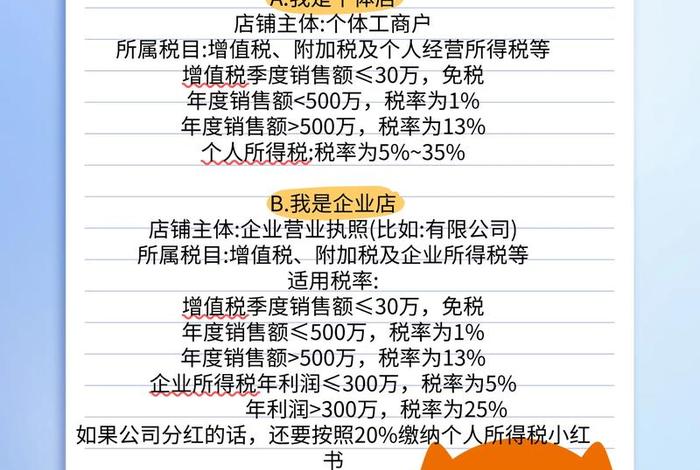 A.我是个体店
店铺主体:个体工商户
所属税目:增值税、附加税及个人经营所得税等
增值税季度销售额≤30万，免税
年度销售额<500万，税率为1%
年度销售额>500万，税率为13%
个人所得税;税率为5%~35%
B.我是企业店
店铺主体:企业营业执照(比如:有限公司)
所属税目:增值税、附加税及企业所得税等
适用税率:
增值税季度销售额≤30万，免税
年度销售额≤500万，税率为1%
年度销售额>500万，税率为13%
企业所得税年利润≤300万，税率为5%
年利润>300万，税率为25%
如果公司分红的话，还要按照20%缴纳个人所得税小红
书